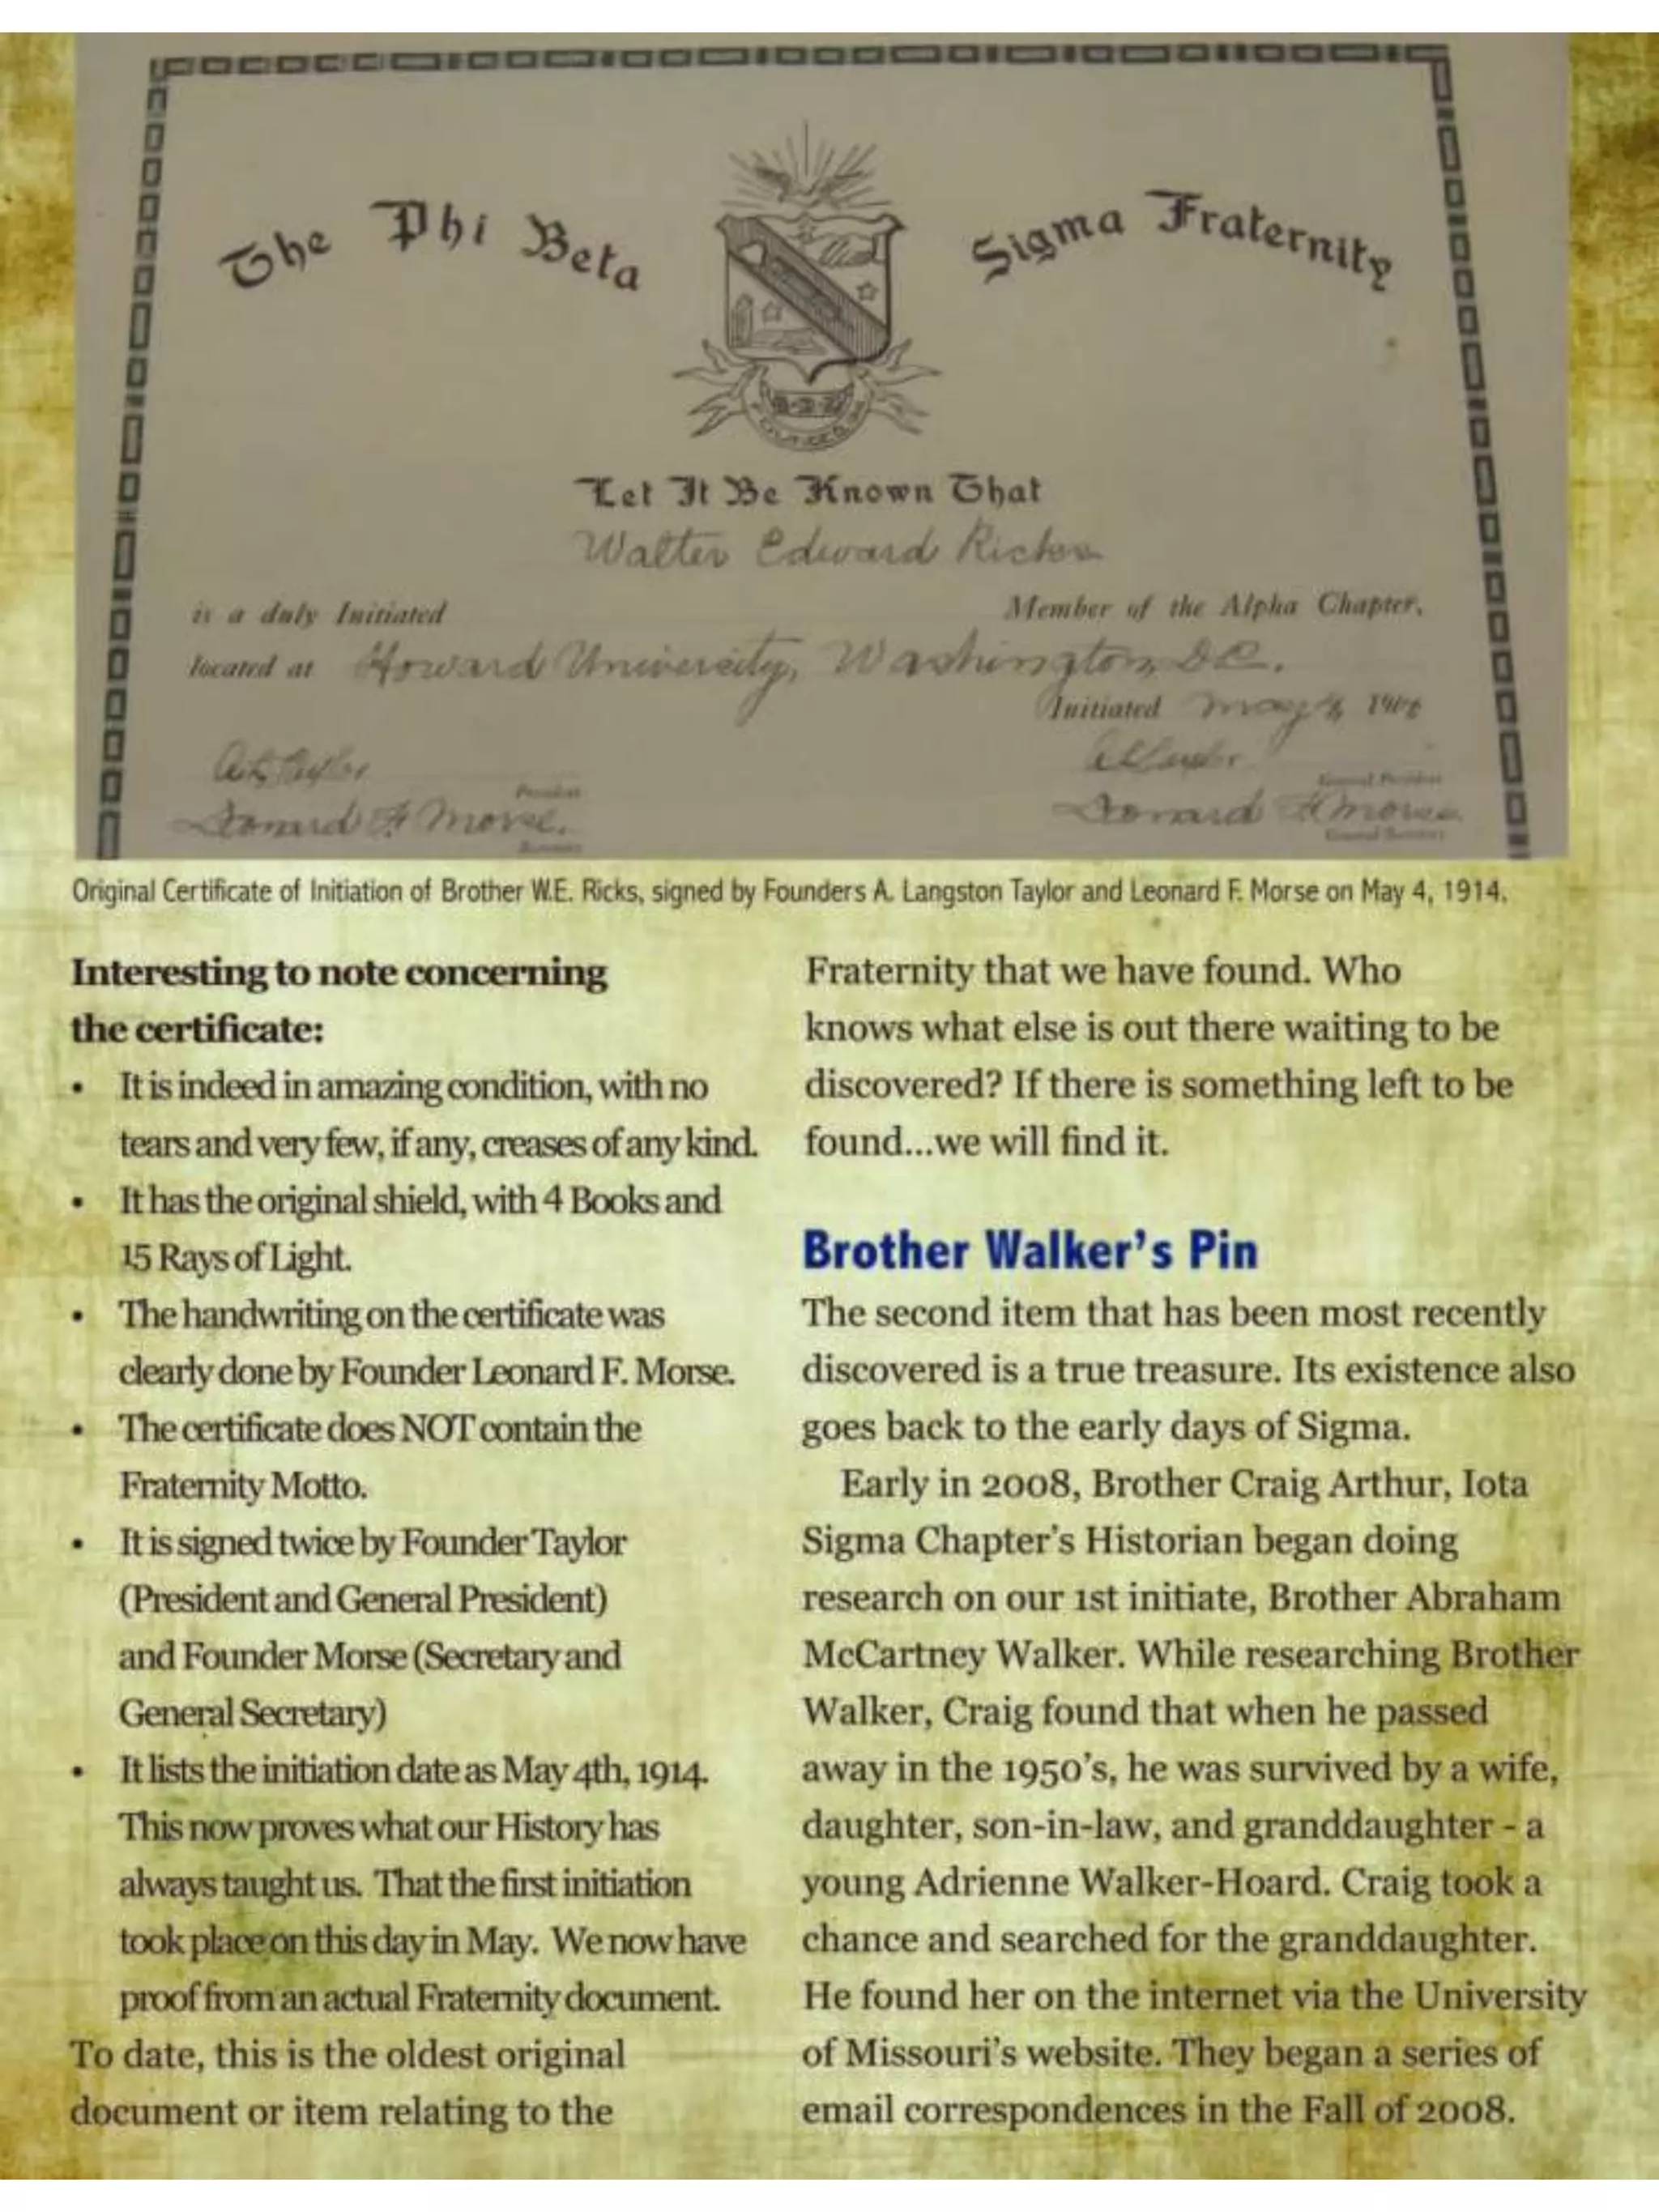 The Phi Beta Sigma Fraternity
Let It Be Known That
Walter Edward Ricks
is a duly Initiated Member of the Alpha Chapter,
located at Howard University, Washington, D.C.
Initiated May 4, 191
President
Leonard F Morse.
Secretary
General President
Leonard F Morse
General Secretary
Original Certificate of Initiation of Brother W.E. Ricks, signed by Founders A. Langston Taylor and Leonard F. Morse on May 4, 1914.
Interesting to note concerning
the certificate:
• It is indeed in amazing condition, with no
tears and very few, if any, creases of any kind.
• It has the original shield, with 4 Books and
15 Rays of Light.
• The handwriting on the certificate was
clearly done by Founder Leonard F. Morse.
• The certificate does NOT contain the
Fraternity Motto.
• It is signed twice by Founder Taylor
(President and General President)
and Founder Morse (Secretary and
General Secretary)
• It lists the initiation date as May 4th, 1914.
This now proves what our History has
always taught us. That the first initiation
took place on this day in May. We now have
proof from an actual Fraternity document.
To date, this is the oldest original
document or item relating to the
Fraternity that we have found. Who
knows what else is out there waiting to be
discovered? If there is something left to be
found...we will find it.
Brother Walker's Pin
The second item that has been most recently
discovered is a true treasure. Its existence also
goes back to the early days of Sigma.
Early in 2008, Brother Craig Arthur, Iota
Sigma Chapter's Historian began doing
research on our 1st initiate, Brother Abraham
McCartney Walker. While researching Brother
Walker, Craig found that when he passed
away in the 1950's, he was survived by a wife,
daughter, son-in-law, and granddaughter - a
young Adrienne Walker-Hoard. Craig took a
chance and searched for the granddaughter.
He found her on the internet via the University
of Missouri's website. They began a series of
email correspondences in the Fall of 2008.